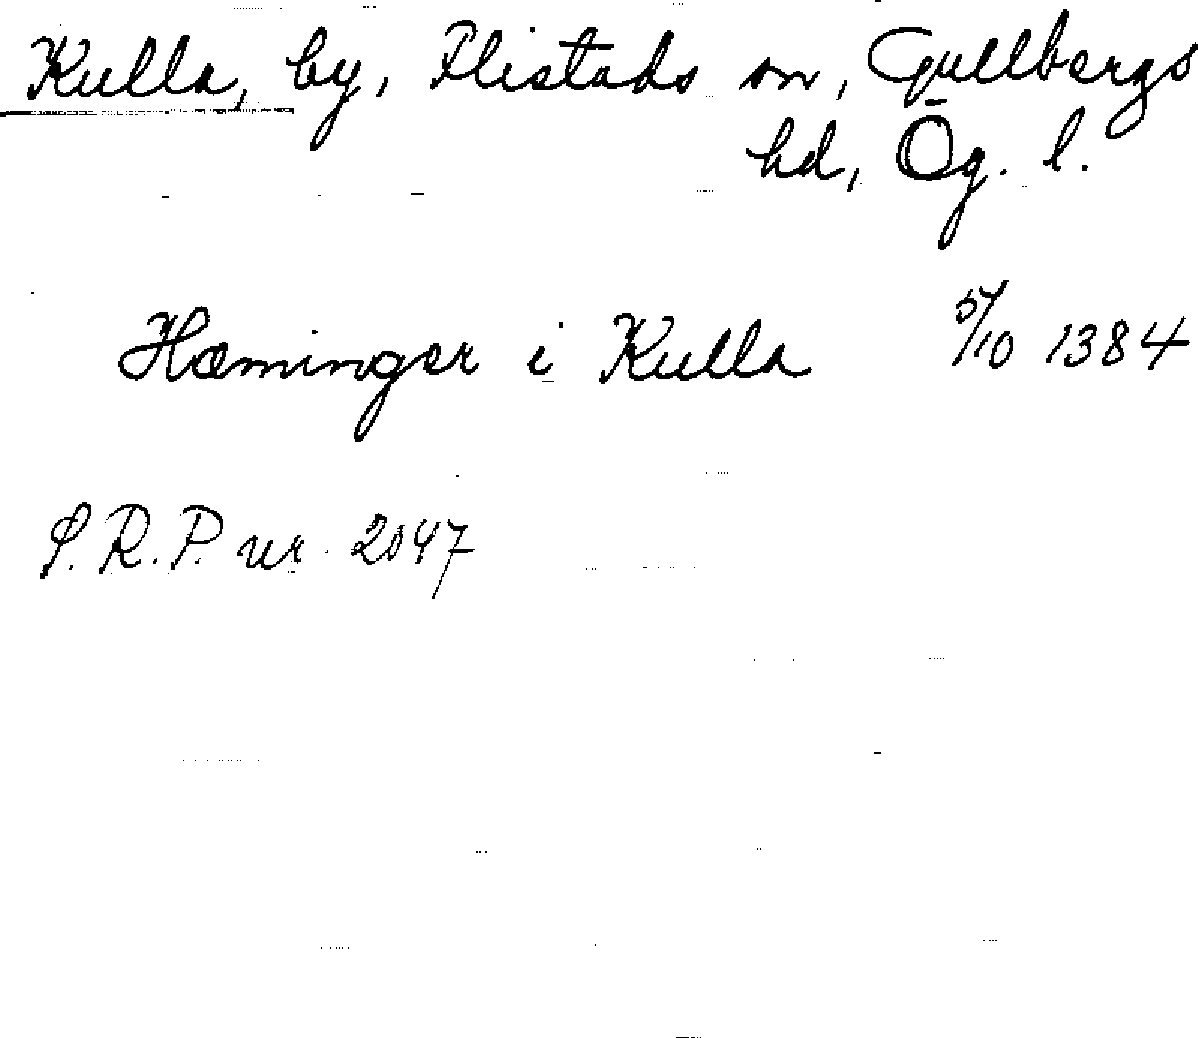 Kulla, by, Flistads sn, Gullbergs
hd, Ög. l.
Hæminger i Kulla 5/10 1384
S.R.P. nr. 2047